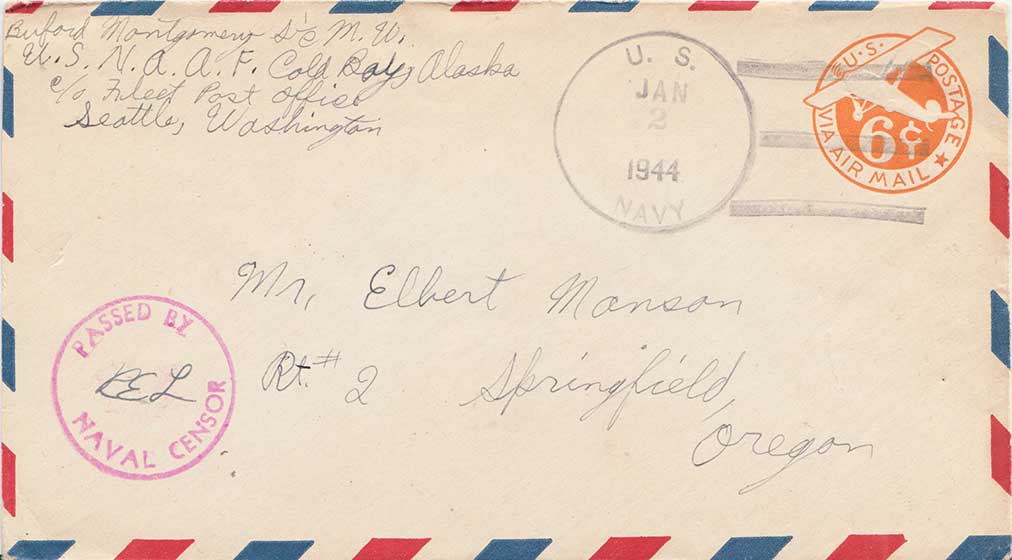 Buford Montgomery S2c M.U.
U. S. N. A. A. F. Cold Bay, Alaska
c/o Fleet Post Office
Seattle, Washington
U. S.
JAN
2
1944
NAVY
U.S. POSTAGE
6¢
VIA AIR MAIL
Mr. Elbert Manson
Rt. # 2 Springfield,
Oregon
PASSED BY
REL
NAVAL CENSOR